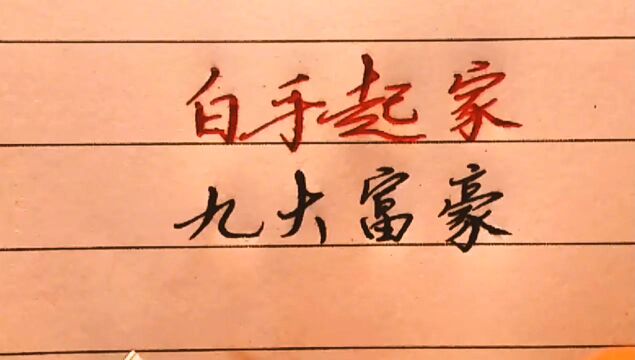 白手起家
九大富豪